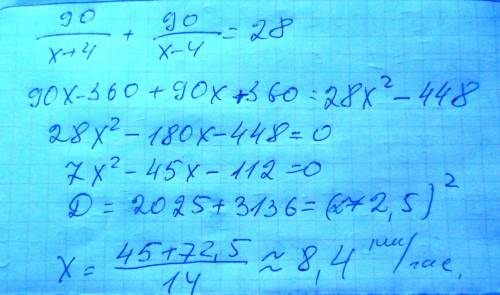 90/(x+4) + 90/(x-4) = 28
90x-360+90x+360=28x²-448
28x²-180x-448=0
7x²-45x-112=0
D = 2025+3136=(72,5)²
x = (45+72,5)/14 ≈ 8,4 км/час.